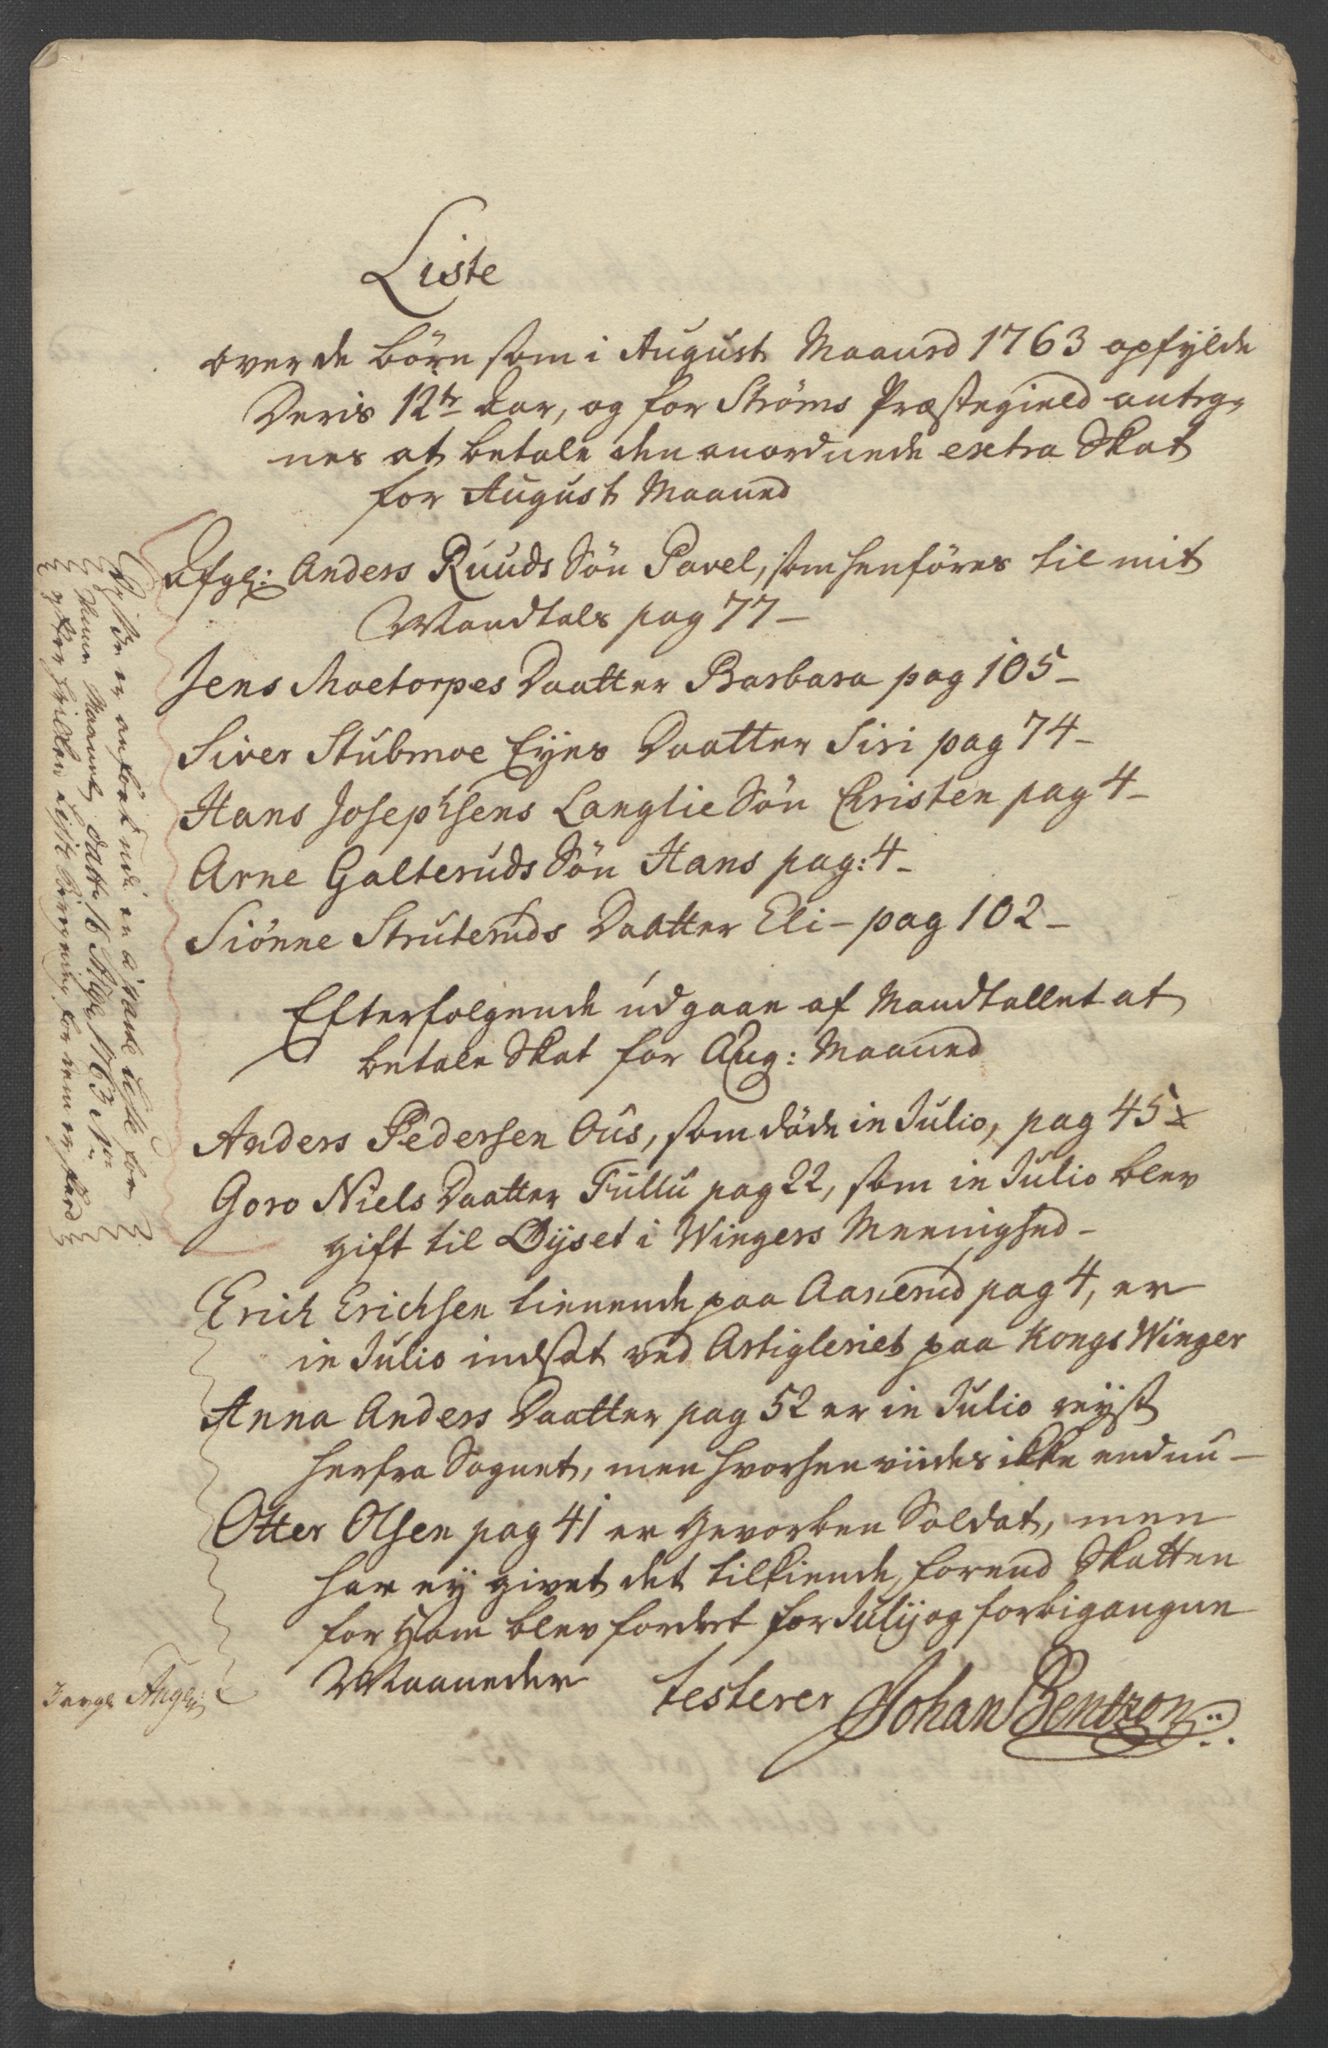 Liste
over de börn som i August Maaned 1763 opfylde
Deris 12te Aar, og for Ströms Præstegield anteg-
nes at betale den anordnede extra Skat
for August Maaned
Anders Ruuds Sön Povel, som henföres til mit
Mandtals pag 77-
Jens Moetorpes Daatter Barbara pag 105-
Siver Stubmoe Eyes Daatter Siri pag 74-
Hans Josephsens Langlie Sön Christen pag 4-
Arne Galteruds Sön Hans pag: 4-
Siönne Struteruds Daatter Eli - pag 102-
Efterfolgende udgaae af Mandtallet at
betale Skat for Aug: Maaned
Anders Pedersen Ous, som döde in Julio, pag 45
Goro Niels Daatter Fullu pag 22, som in Julio blev
gift til Öyset i Wingers Meenighed-
Erich Erichsen tienende paa Aaserud pag 4, er
in Julio indsat ved Artigleriet paa Kongs Winger
Anna Anders Daatter pag 52 er in Julio reyst
herfra Sognet, men hvorhen viides ikke endnu-
Otter Olsen pag 41 er Gevorben Soldat, men
har ey givet det tilkiende, forend Skatten
for Ham blev fordret for Julij og forbigangne
Maaneder testerer Johan Bentzon
er anfört udi en
Maaned 1763